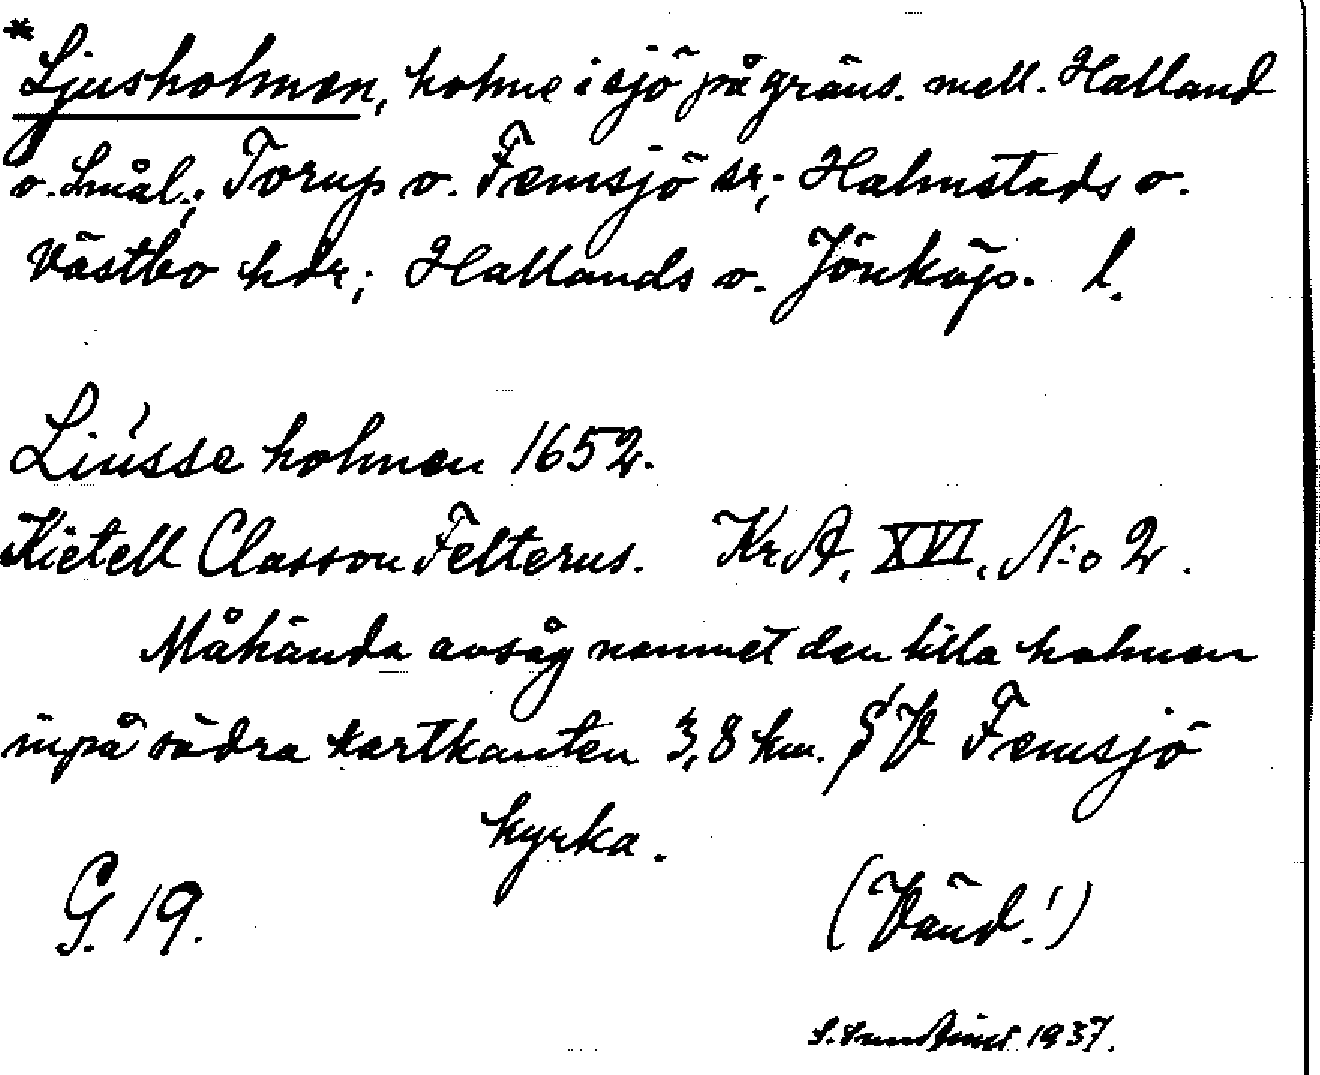 *Ljusholmen, holme i sjö på gräns. mell. Halland
o. Smål.; Torup o. Femsjö sr; Halmstads o.
Västbo hdr; Hallands o. Jönköp. l.
Liússe holmen 1652.
Kietell Classon Felterus. Kr.A. XVI. N:o 2.
Måhända avsåg namnet den lilla holmen
inpå södra kartkanten 3,8 km. SV Femsjö
kyrka.
G. 19.
(Vänd!)
1937.